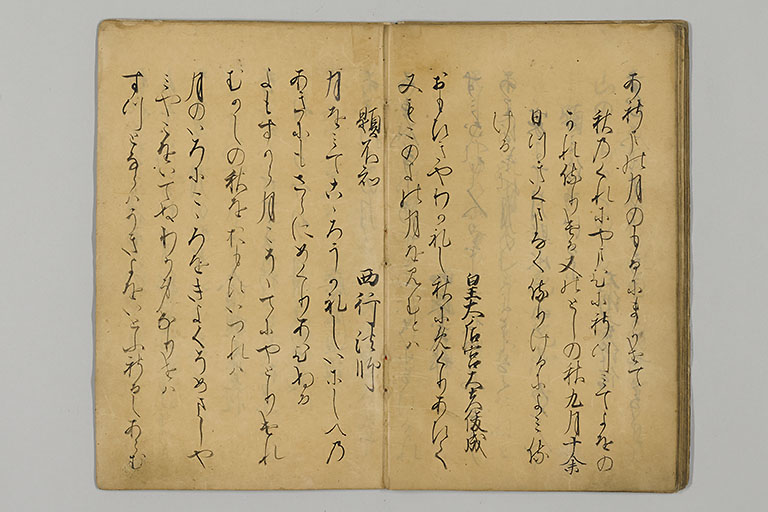 月のもるにまかせて
秋のくれにやまひにしつみてよをの
かれ侍りける又のとしの秋九月十余
日月くまなく侍りけるによみ侍
ける
皇太后宮大夫俊成
おもひきやわかれし秋にめくりあひて
又もこのよの月をみむとは
題不知　西行法師
月をみてこゝろうかれしいにしへの
あきにもさらにめくりあひぬる
よもすから月こそゝてにやとりけれ
むかしの秋をおもひいつれは
月のいろにこゝろをきよくそめましや
みやこをいてぬわか身なりせは
すつとならはうきよをいとふしるしあらむ